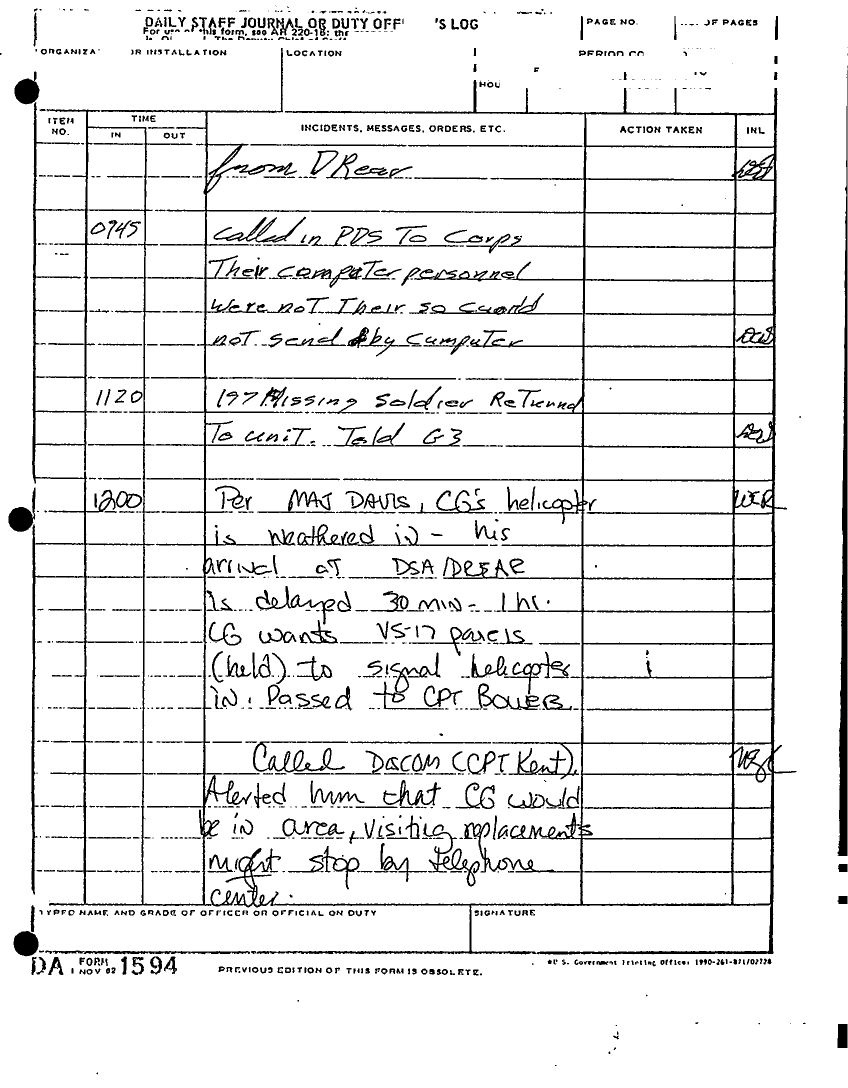 DAILY STAFF JOURNAL OR DUTY OFF 'S LOG
For use of this form, see AR 220-15; the
PAGE NO.
OF PAGES
ORGANIZA OR INSTALLATION
LOCATION
PERIOD CO
HOU
ITEM NO.
TIME
IN
OUT
INCIDENTS, MESSAGES, ORDERS, ETC.
ACTION TAKEN
INL
from DRear
0945 Called in PDS To Corps
Their computer personnel
were not Their so could
not send by Cumputer
1120 197 Missing Soldier Returned
To unit. Told G3
1200 Per MAJ DAVIS, CG's helicopter WER
is weathered in - his
arrival at DSA/DREAR
is delayed 30 min - 1 hr.
CG wants VS-17 panels
(held) to signal helicopter
in. Passed to CPT Bowers.
Called DISCOM (CPT Kent).
Alerted him that CG would
be in area, visiting replacements
might stop by telephone
center.
TYPED NAME AND GRADE OF OFFICER OR OFFICIAL ON DUTY
SIGNATURE
DA FORM 1 NOV 62 1594
PREVIOUS EDITION OF THIS FORM IS OBSOLETE.
*U.S. Government Printing Office: 1990-261-871/02728